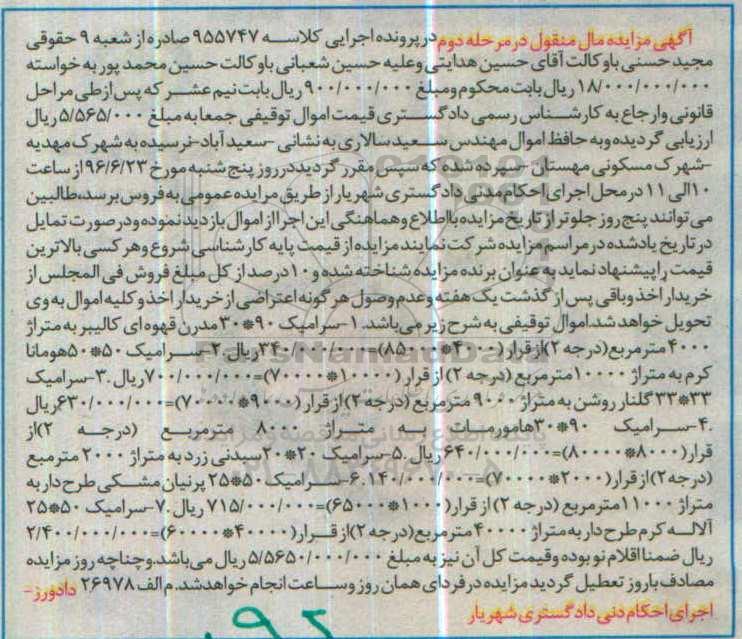 آگهی مزایده مال منقول در مرحله دوم در پرونده اجرایی کلاسه ۹۵۵۷۴۷ صادره از شعبه ۹ حقوقی
مجید حسنی با وکالت آقای حسین هدایتی وعلیه حسین شعبانی با وکالت حسین محمد پور به خواسته
۱۸/۰۰۰/۰۰۰/۰۰۰ ریال بابت محکوم و مبلغ ۹۰۰/۰۰۰/۰۰۰ ریال بابت نیم عشر که پس از طی مراحل
قانونی وارجاع به کارشناس رسمی دادگستری قیمت اموال توقیفی جمعا به مبلغ ۵/۵۶۵/۰۰۰ ریال
ارزیابی گردیده وبه حافظ اموال مهندس سعید سالاری به نشانی -سعید آباد-نرسیده به شهرک مهدیه
-شهرک مسکونی مهستان -سپرده شده که سپس مقرر گردید در روز پنج شنبه مورخ ۹۶/۶/۲۳ از ساعت
۱۰ الی ۱۱ در محل اجرای احکام مدنی دادگستری شهریار از طریق مزایده عمومی به فروش برسد، طالبین
می توانند پنج روز جلوتر از تاریخ مزایده با اطلاع وهماهنگی این اجرا از اموال بازدید نموده و در صورت تمایل
در تاریخ یادشده در مراسم مزایده شرکت نمایند مزایده از قیمت پایه کارشناسی شروع وهر کسی بالاترین
قیمت را پیشنهاد نماید به عنوان برنده مزایده شناخته شده و ۱۰ درصد از کل مبلغ فروش فی المجلس از
خریدار اخذ وباقی پس از گذشت یک هفته وعدم وصول هر گونه اعتراضی از خریدار اخذ و کلیه اموال به وی
تحویل خواهد شد.اموال توقیفی به شرح زیر می باشد. ۱-سرامیک ۹۰*۳۰ مدرن قهوه ای کالیبر به متراژ
۴۰۰۰ مترمربع(درجه ۲)از قرار (۴۰۰۰*۸۵۰۰۰)=۳۴۰/۰۰۰/۰۰۰ریال .۲-سرامیک ۵۰*۵۰هومانا
کرم به متراژ ۱۰۰۰۰مترمربع (درجه ۲) از قرار (۱۰۰۰۰*۷۰۰۰۰)=۷۰۰/۰۰۰/۰۰۰ریال .۳-سرامیک
۳۳*۳۳ گلنار روشن به متراژ ۹۰۰۰ مترمربع (درجه ۲) از قرار (۹۰۰۰*۷۰۰۰۰)=۶۳۰/۰۰۰/۰۰۰ریال
.۴-سرامیک ۹۰*۳۰هامورمات به متراژ ۸۰۰۰ مترمربع (درجه ۲)از
قرار(۸۰۰۰*۸۰۰۰۰)=۶۴۰/۰۰۰/۰۰۰ریال .۵-سرامیک ۲۰*۲۰سیدنی زرد به متراژ ۲۰۰۰ مترمربع
(درجه۲)از قرار(۲۰۰۰*۷۰۰۰۰)=۱۴۰/۰۰۰/۰۰۰.۶-سرامیک ۵۰*۲۵ پرنیان مشکی طرح دار به
متراژ ۱۱۰۰۰مترمربع (درجه ۲) از قرار(۱۱۰۰۰*۶۵۰۰۰)=۷۱۵/۰۰۰/۰۰۰ ریال .۷-سرامیک ۵۰*۲۵
آلاله کرم طرح دار به متراژ ۴۰۰۰۰ مترمربع(درجه ۲)از قرار(۴۰۰۰۰*۶۰۰۰۰)=۲/۴۰۰/۰۰۰/۰۰۰
ریال ضمنا اقلام نو بوده وقیمت کل آن نیز به مبلغ ۵/۵۶۵۰/۰۰۰/۰۰۰ ریال می باشد.وچناچه روز مزایده
مصادف باروز تعطیل گردید مزایده در فردای همان روز و ساعت انجام خواهد شد. م الف ۲۶۹۷۸ دادورز-
اجرای احکام دنی دادگستری شهریار